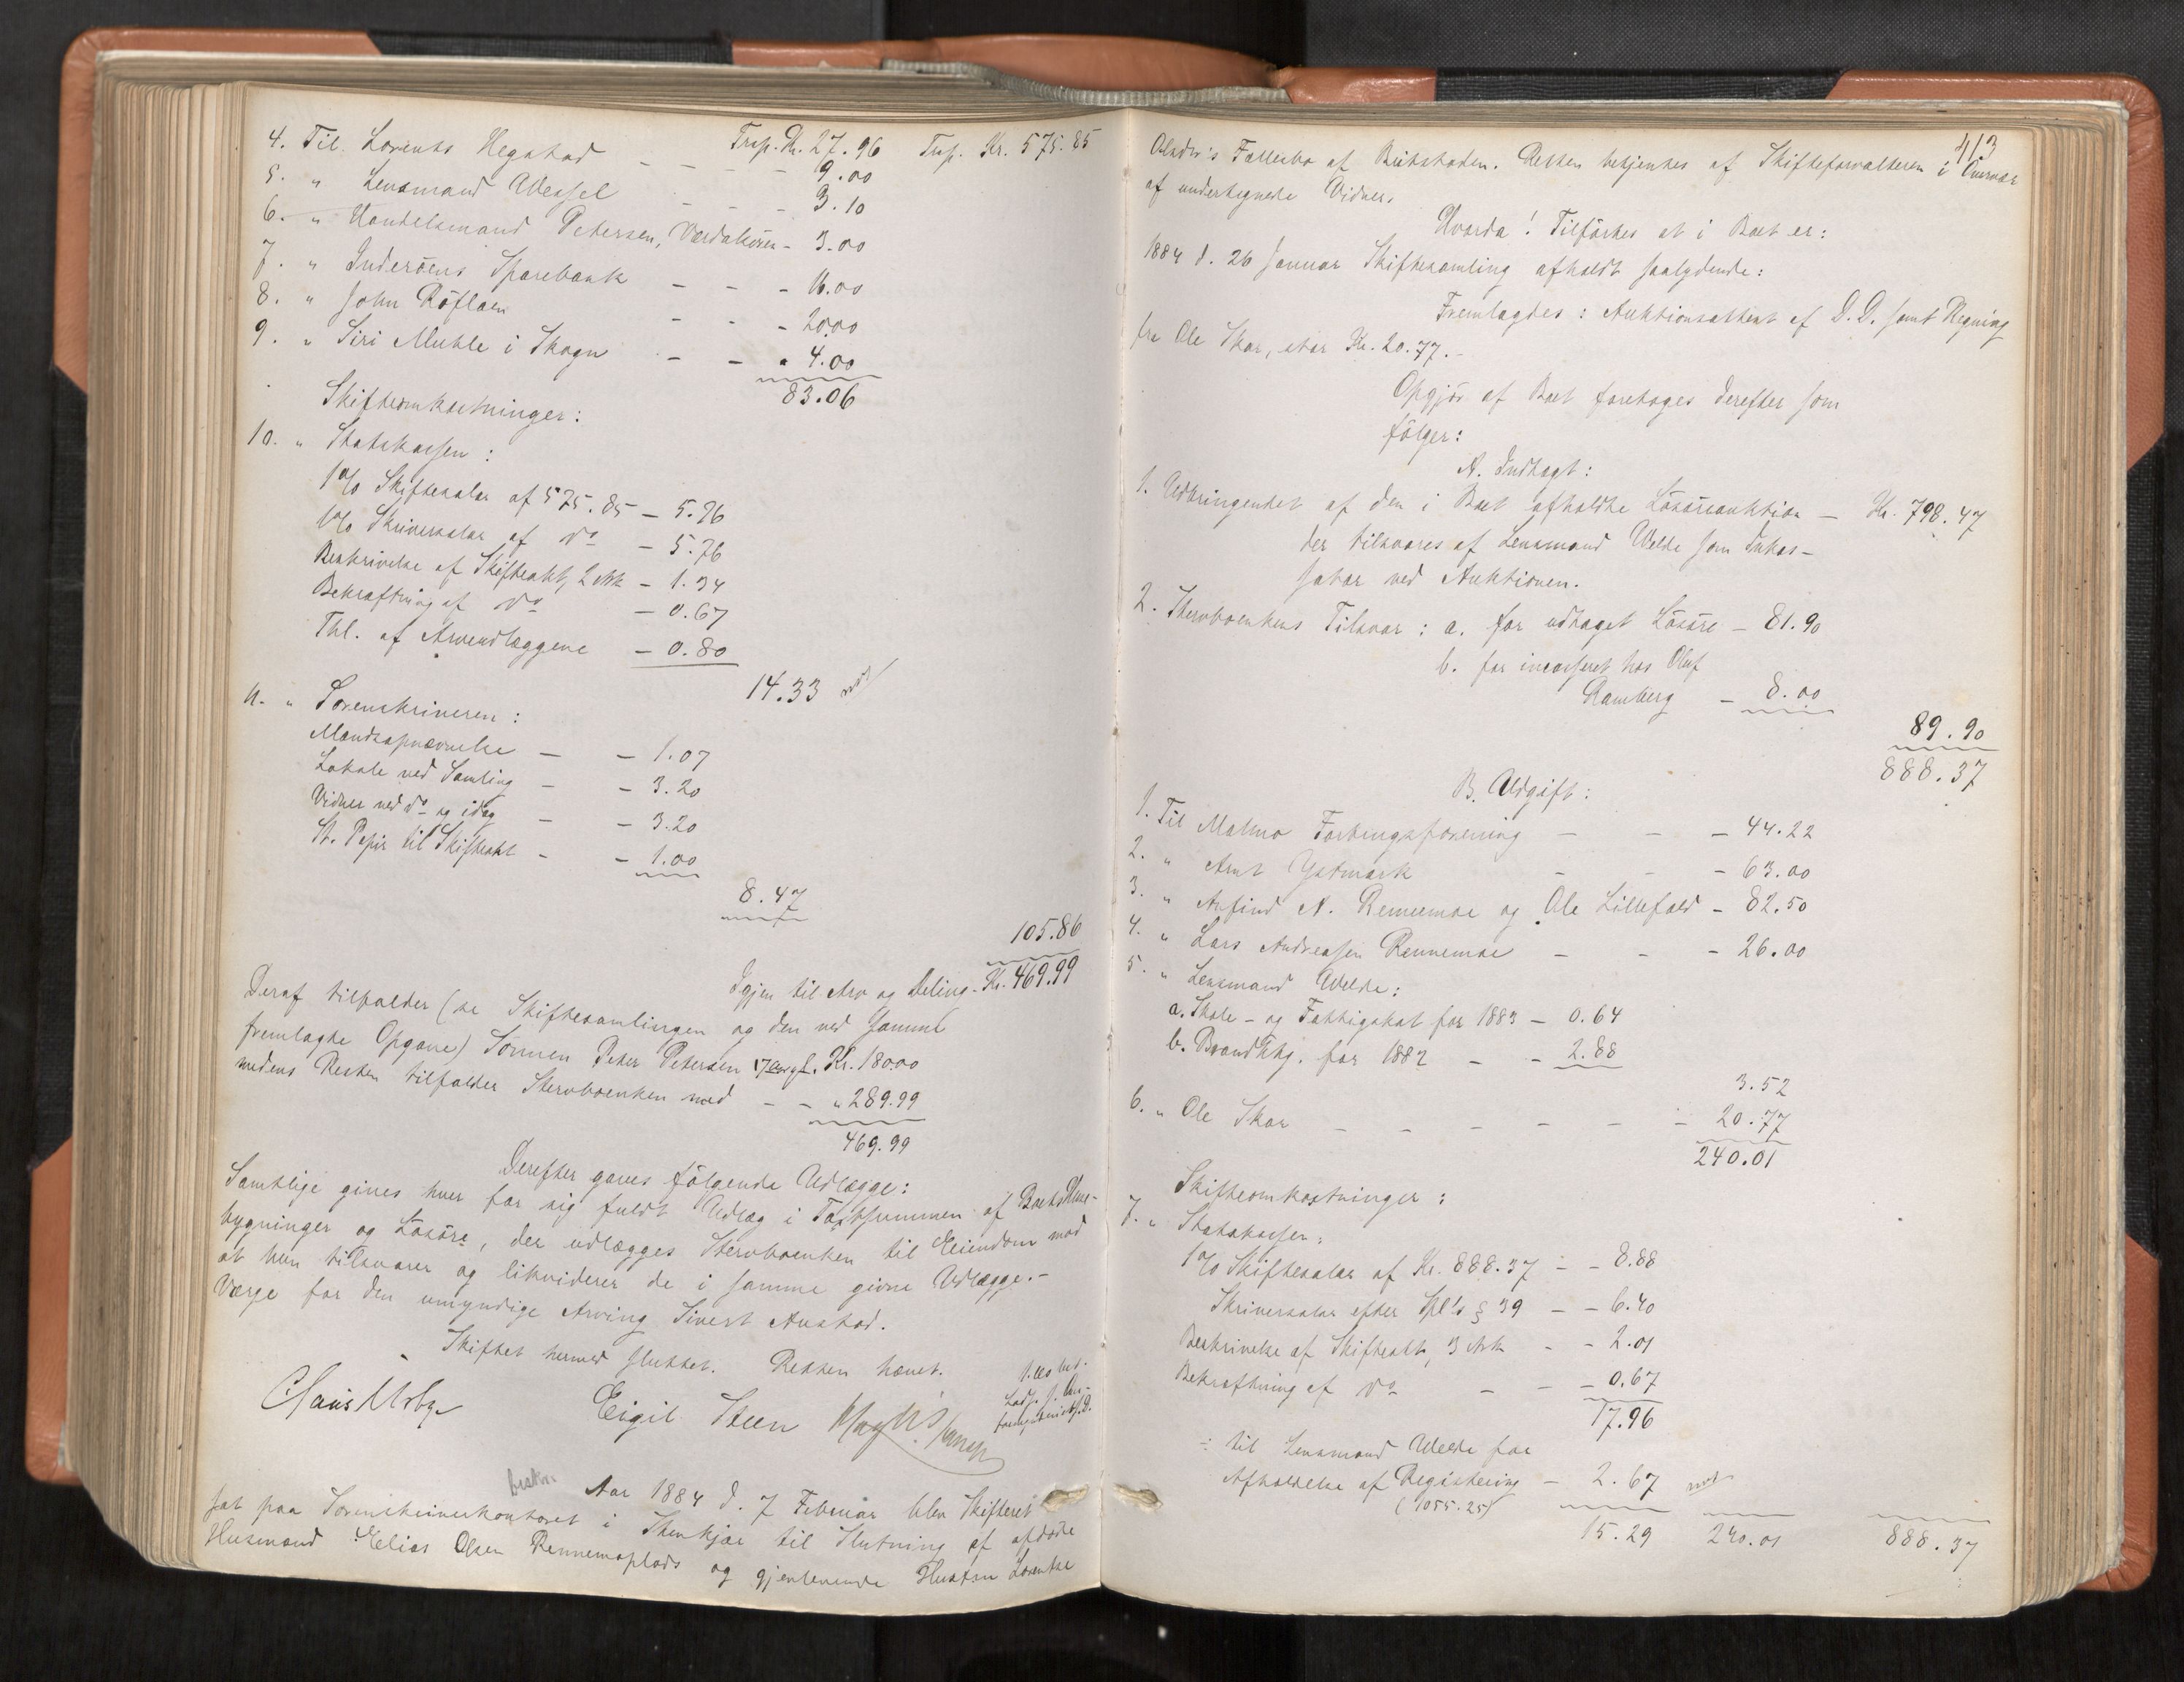 Trsp. Kr. 27.96 Trsp. Kr. 575.85
4. Til Lorents Hegstad - - - 9.00
5. " Lensmand Wessel - - - 3.10
6. " Handelsmand Petersen, Værdalsøren - 3.00
7. " Inderøens Sparebank - - - 16.00
8. " John Röflaen - - - 20.00
9. " Siri Muhle i Skogn - - " 4.00
83.06
Skifteomkostninger:
10. " Statskassen:
1% Skiftesalær af 575.85 - 5.76
1% Skriversalær af do - 5.76
Beskrivelse af Skifteakt, 2 Ark - 1.34
Bekræftning af do - 0.67
Thl. af Arveudlæggene - 0.80
14.33
11. " Sorenskriveren:
Mandsopnævnelse - - 1.07
Lokale ved Samling - - 3.20
Vidner ved do og idag - - 3.20
St. Papir til Skifteakt - - 1.00
8.47
105.86
Igjen til Arv og Deling - Kr. 469.99
Deraf tilfalder (se Skiftesamlingen og den ved samme
fremlagte Opgave) Sønnen Peter Petersen 17 Aar gl. Kr. 180.00
medens Resten tilfalder Stervboenken med - - " 289.99
469.99
Derefter gaves følgende Udlægge:
Samtlige gives hver for sig fuldt Udlæg i Taxtsummen af Boets Huse-
bygninger og Løsøre, der udlægges Stervboenken til Eiendom mod
at hun tilsvarer og likviderer de i samme givne Udlægge.-
Værge for den umyndige Arving Sivert Austad.
Skiftet hermed sluttet. Retten hævet.
Eigil Steen
Aar 1884 d. 7 Februar blev Skifteret
sat paa Sorenskriverkontoret i Stenkjær til Slutning af afdøde
Husmand Elias Olsen Rennemoplads og gjenlevende Hustru Lorentse
413
Olsdtr's Fællesbo af Beitstaden. Retten betjentes af Skifteforvalteren i Overvær
af undertegnede Vidner.
Hvorda! Tilførtes at i Boet er:
1884 d. 26 Januar Skiftesamling afholdt saalydende:
Fremlagdes: Auktionsattest af D.D. samt Regning
fra Ole Skar, stor Kr. 20.77.-
Opgjör af Boet foretoges derefter som
følger:
A. Indtægt:
1. Udbringendet af den i Boet afholdte Løsøreauktion - Kr. 798.47
der tilsvares af Lensmand Welde som Inkas-
sator ved Auktionen.
2. Stervboenkens Tilsvar: a. for udtaget Løsøre - 81.90
b. for incasseret hos Oluf
Ramberg - 8.00
89.90
888.37
B. Udgift:
1. Til Malmo Forbrugsforening - - - 44.22
2. " Arnt Ystmark - - - 63.00
3. " Arfind A. Rennemoe og Ole Lillefald - 82.50
4. " Lars Andreassen Rennemoe - - - 26.00
5. " Lensmand Welde:
a. Skole- og Fattigskat for 1883 - 0.64
b. Brandktg. for 1882 - - 2.88
3.52
6. " Ole Skar - - - - - - 20.77
240.01
Skifteomkostninger:
7. " Statskassen:
1% Skiftesalær af Kr. 888.37 - - 8.88
Skriversalær efter Spl's § 39 - - 6.40
Beskrivelse af Skifteakt, 3 Ark - - 2.01
Bekræftning af do - - - 0.67
17.96
÷ til Lensmand Welde for
Afholdelse af Registrering - 2.67
(1055.25)
15.29 240.01 888.37